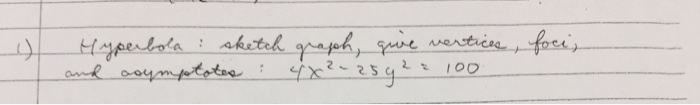 1) Hyperbola : sketch graph, give vertices, foci,
and asymptotes : 4x² - 25y² = 100